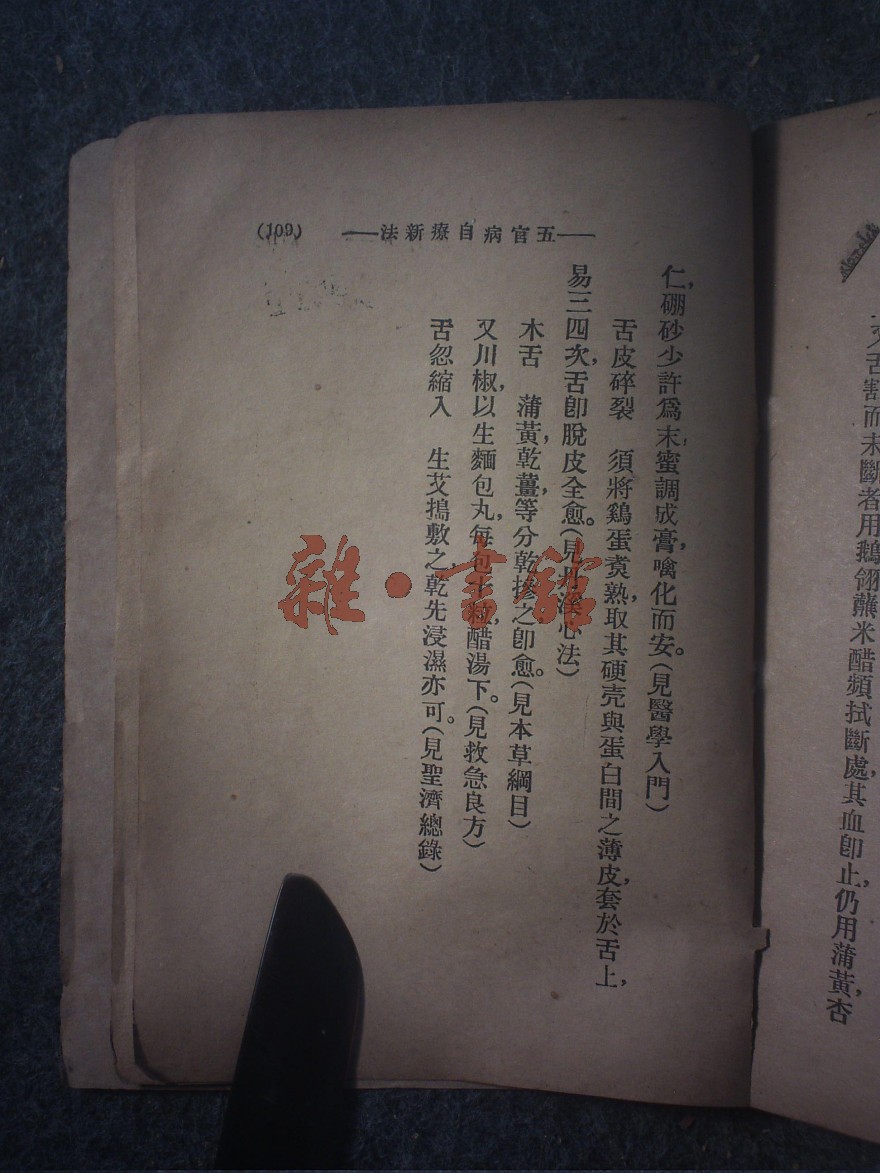 又舌割而未斷者用鵝翎蘸米醋頻拭斷處，其血卽止，仍用蒲黃，杏
(109) ——法新療自病官五——
仁，硼砂少許爲末，蜜調成膏，噙化而安。(見醫學入門)
舌皮碎裂　須將鷄蛋煑熟，取其硬壳與蛋白間之薄皮，套於舌上，
易三四次，舌卽脫皮全愈。(見丹溪心法)
木舌　蒲黃，乾薑，等分乾摻之，卽愈。(見本草綱目)
又川椒，以生麵包丸，每包十粒，醋湯下。(見救急良方)
舌忽縮入　生艾搗敷之，乾先浸濕亦可。(見聖濟總錄)
雜·書館